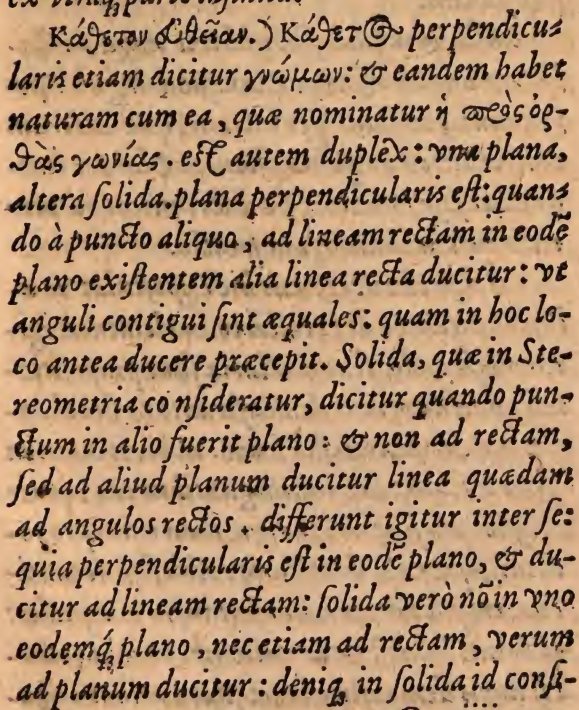 Κάθετον εὐθεῖαν.) Κάθετος perpendicu-
laris etiam dicitur γνώμων: & eandem habet
naturam cum ea, quæ nominatur ἡ πρὸς ὀρ-
θὰς γωνίας. est autem duplex: vna plana,
altera solida. plana perpendicularis est: quan-
do à puncto aliquo, ad lineam rectam in eodē
plano existentem alia linea recta ducitur: vt
anguli contigui sint æquales: quam in hoc lo-
co antea ducere præcepit. Solida, quæ in Ste-
reometria co nsideratur, dicitur quando pun-
ctum in alio fuerit plano: & non ad rectam,
sed ad aliud planum ducitur linea quædam
ad angulos rectos. differunt igitur inter se:
quia perpendicularis est in eodē plano, & du-
citur ad lineam rectam: solida verò nō in vno
eodemq́ꝫ plano, nec etiam ad rectam, verum
ad planum ducitur: deniqꝫ in solida id consi-